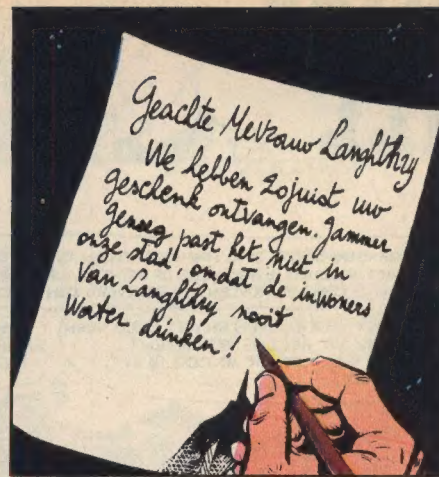 Geachte Mevrouw Langhthry
We hebben zojuist uw
geschenk ontvangen. Jammer
genoeg past het niet in
onze stad, omdat de inwoners
van Langhthry nooit
water drinken!